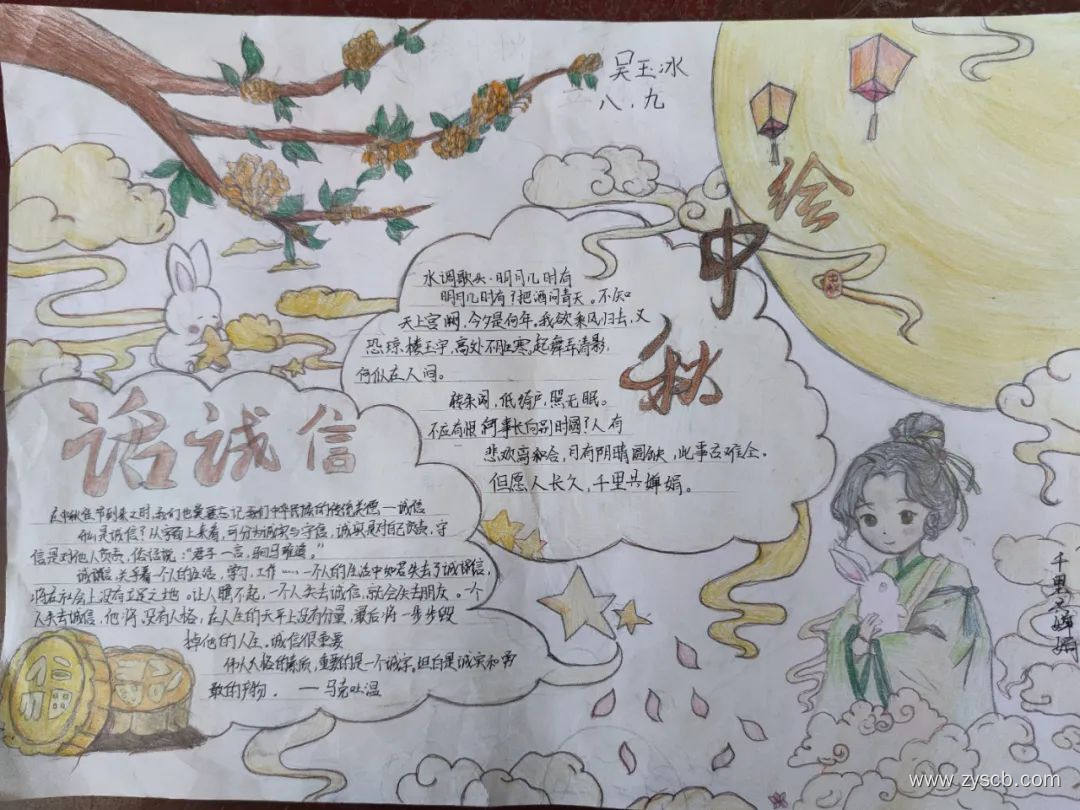 吴玉冰
八.九
绘中秋
水调歌头·明月几时有
明月几时有?把酒问青天。不知
天上宫阙,今夕是何年。我欲乘风归去,又
恐琼楼玉宇,高处不胜寒。起舞弄清影,
何似在人间。
转朱阁,低绮户,照无眠。
不应有恨,何事长向别时圆?人有
悲欢离和合,月有阴晴圆缺,此事古难全。
但愿人长久,千里共婵娟。
话诚信
在中秋佳节到来之时,我们也要忘记我们中华民族的传统美德——诚信
什么是诚信?从字面上来看,可分为诚实与守信,诚实是对自己负责,守
信是对他人负责,俗话说:“君子一言,驷马难追。”
诚信,关乎着一个人的生活,学习,工作……一个人的生活中如若失去了诚信,
将在社会上没有立足之地。让人瞧不起,一个人失去诚信,就会失去朋友。一个
人失去诚信,他将没有人格,在人生的天平上没有分量,最后将一步步毁
掉他的人生,诚信很重要
伟大人格的素质,重要的是一个诚字。坦白是诚实和勇
敢的产物. ——马克吐温
福
千里共婵娟
www.zyscb.com